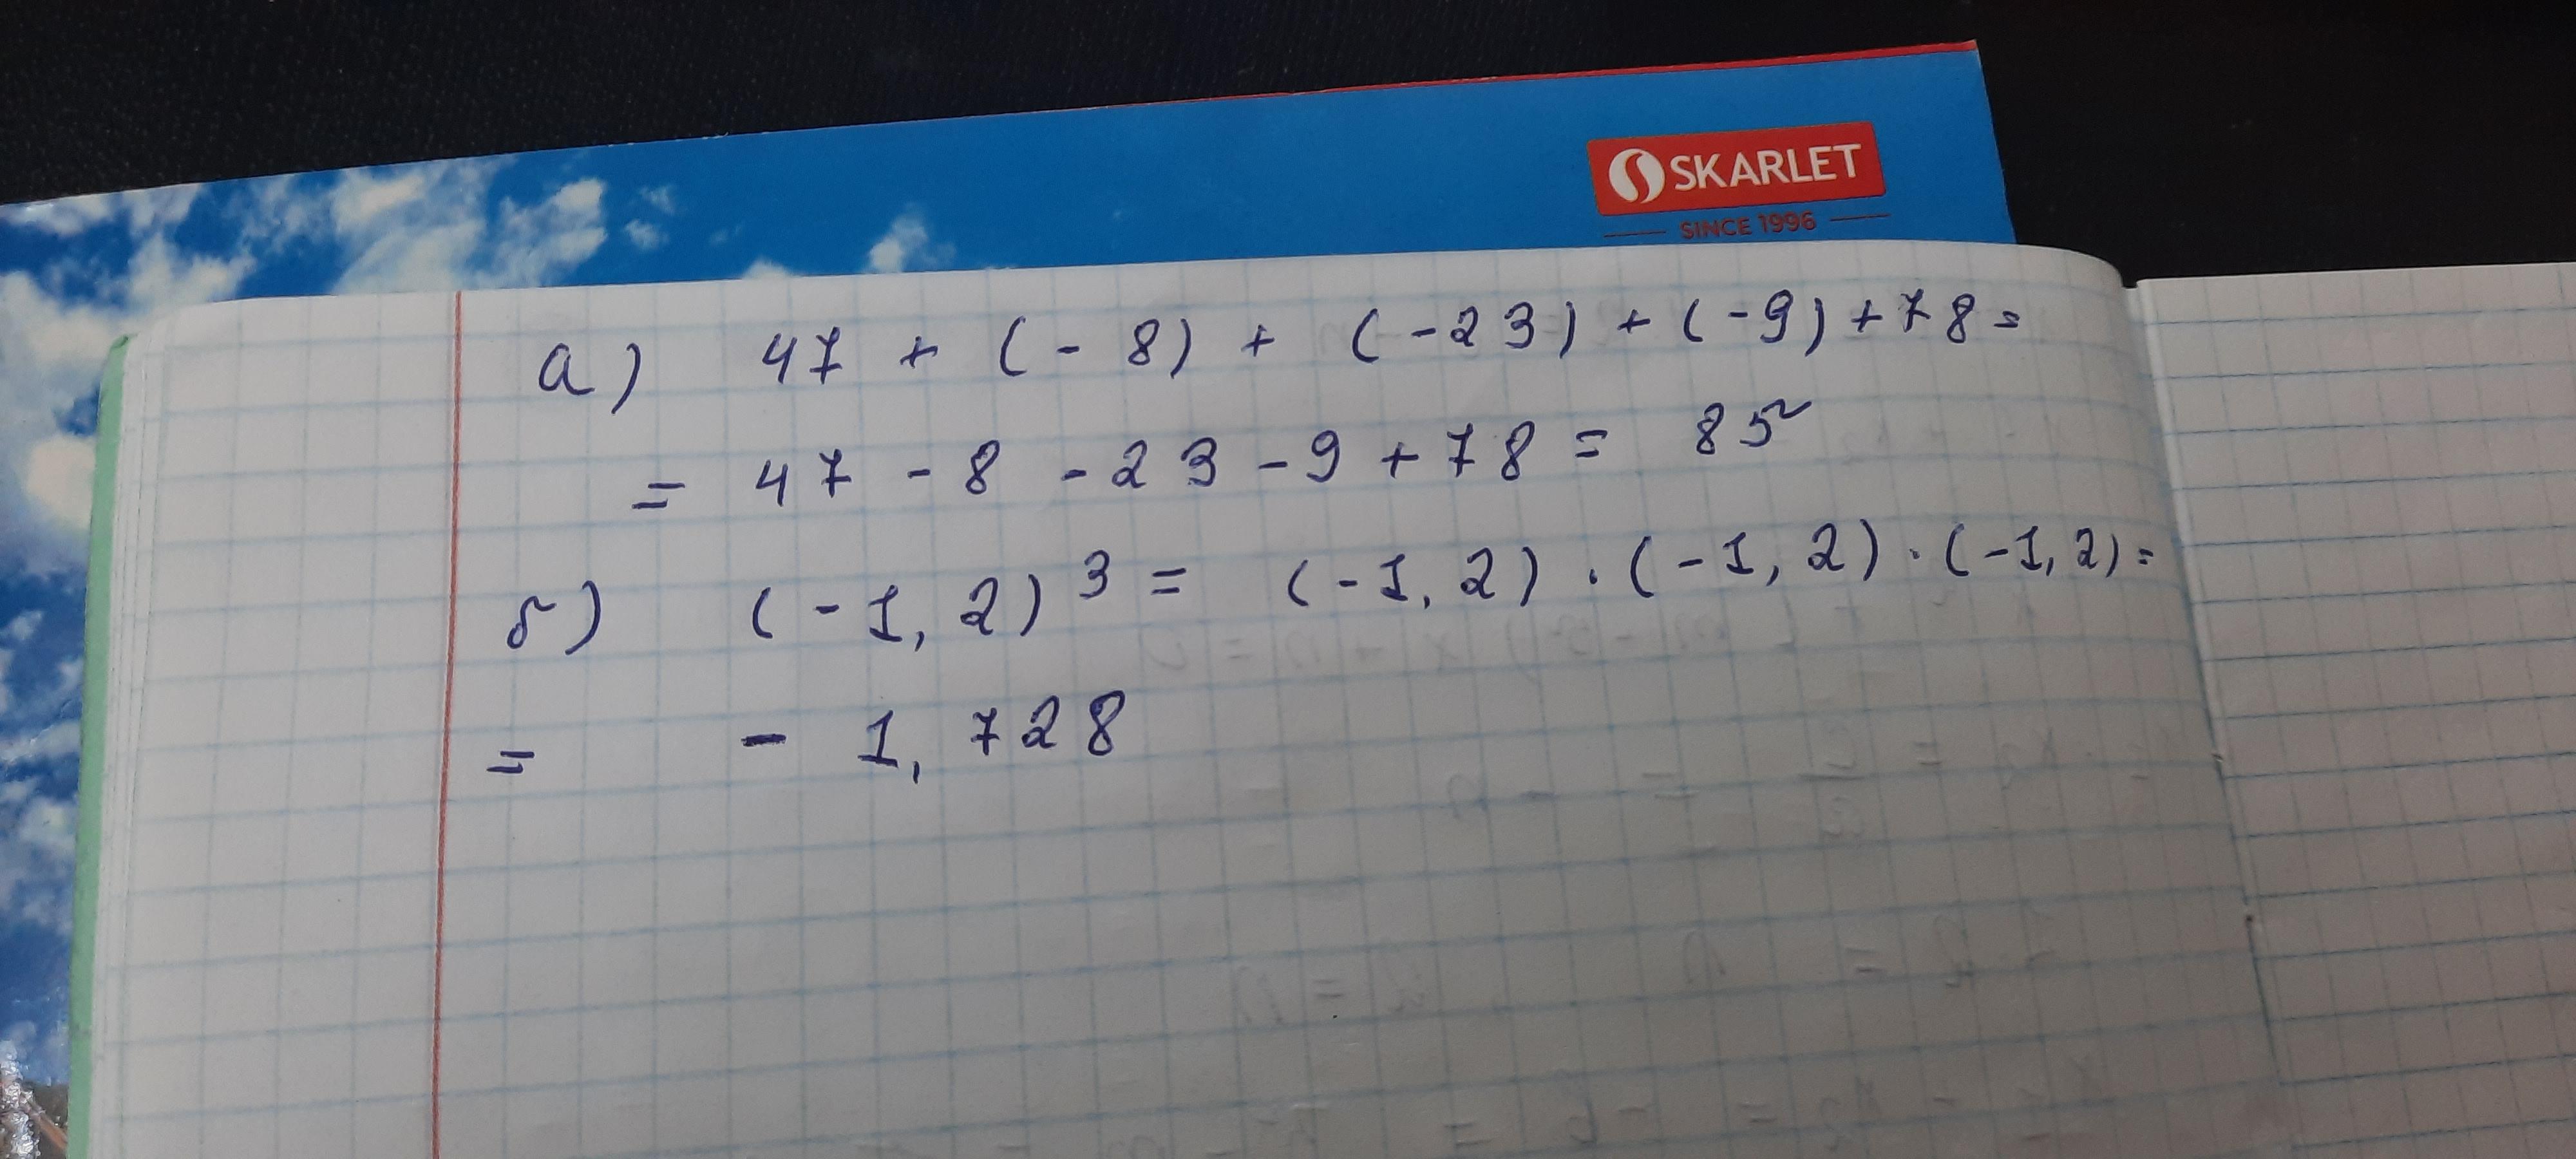 SKARLET
SINCE 1996
а) 47 + (- 8) + (-23) + (-9) +78=
= 47 - 8 - 23 - 9 + 78 = 85
б) (-1,2)³ = (-1,2) · (-1,2) · (-1,2)=
= - 1,728